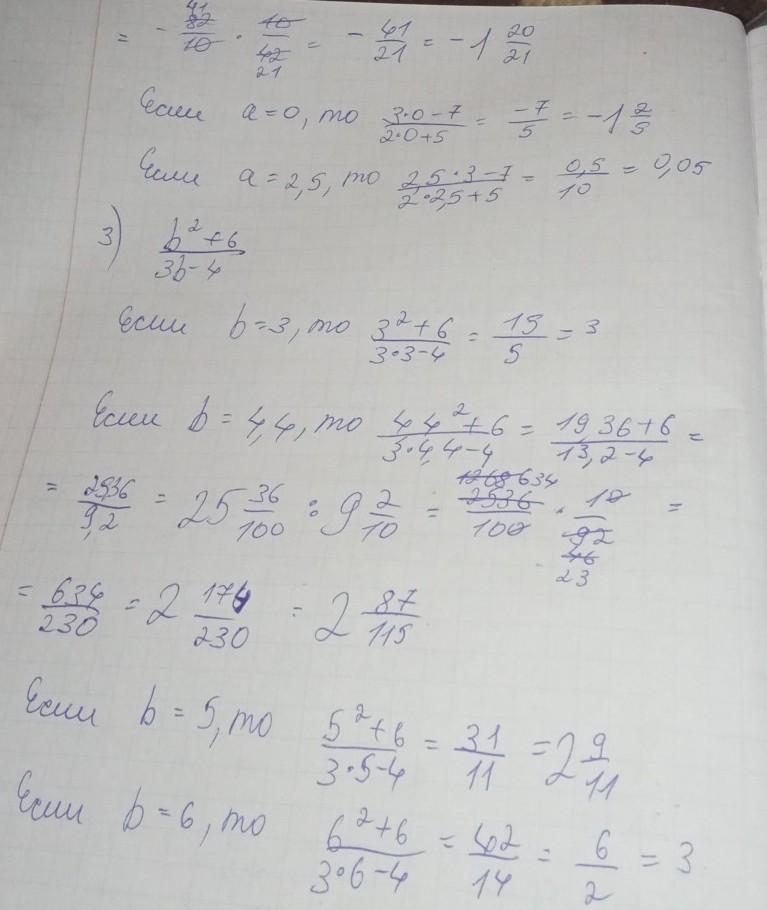 = - 41 82/10 · 10/42 21 = - 41/21 = -1 20/21
Если a=0, то 3·0-7/2·0+5 = -7/5 = -1 2/5
Если a=2,5, то 2,5·3-7/2·2,5+5 = 0,5/10 = 0,05
3) b²+6/3b-4
Если b=3, то 3²+6/3·3-4 = 15/5 = 3
Если b=4,4, то 4,4²+6/3·4,4-4 = 19,36+6/13,2-4 =
= 25,36/9,2 = 25 36/100 : 9 2/10 = 1268 634 2536/100 · 10/92 46 23 =
= 634/230 = 2 174/230 = 2 87/115
Если b=5, то 5²+6/3·5-4 = 31/11 = 2 9/11
Если b=6, то 6²+6/3·6-4 = 42/14 = 6/2 = 3